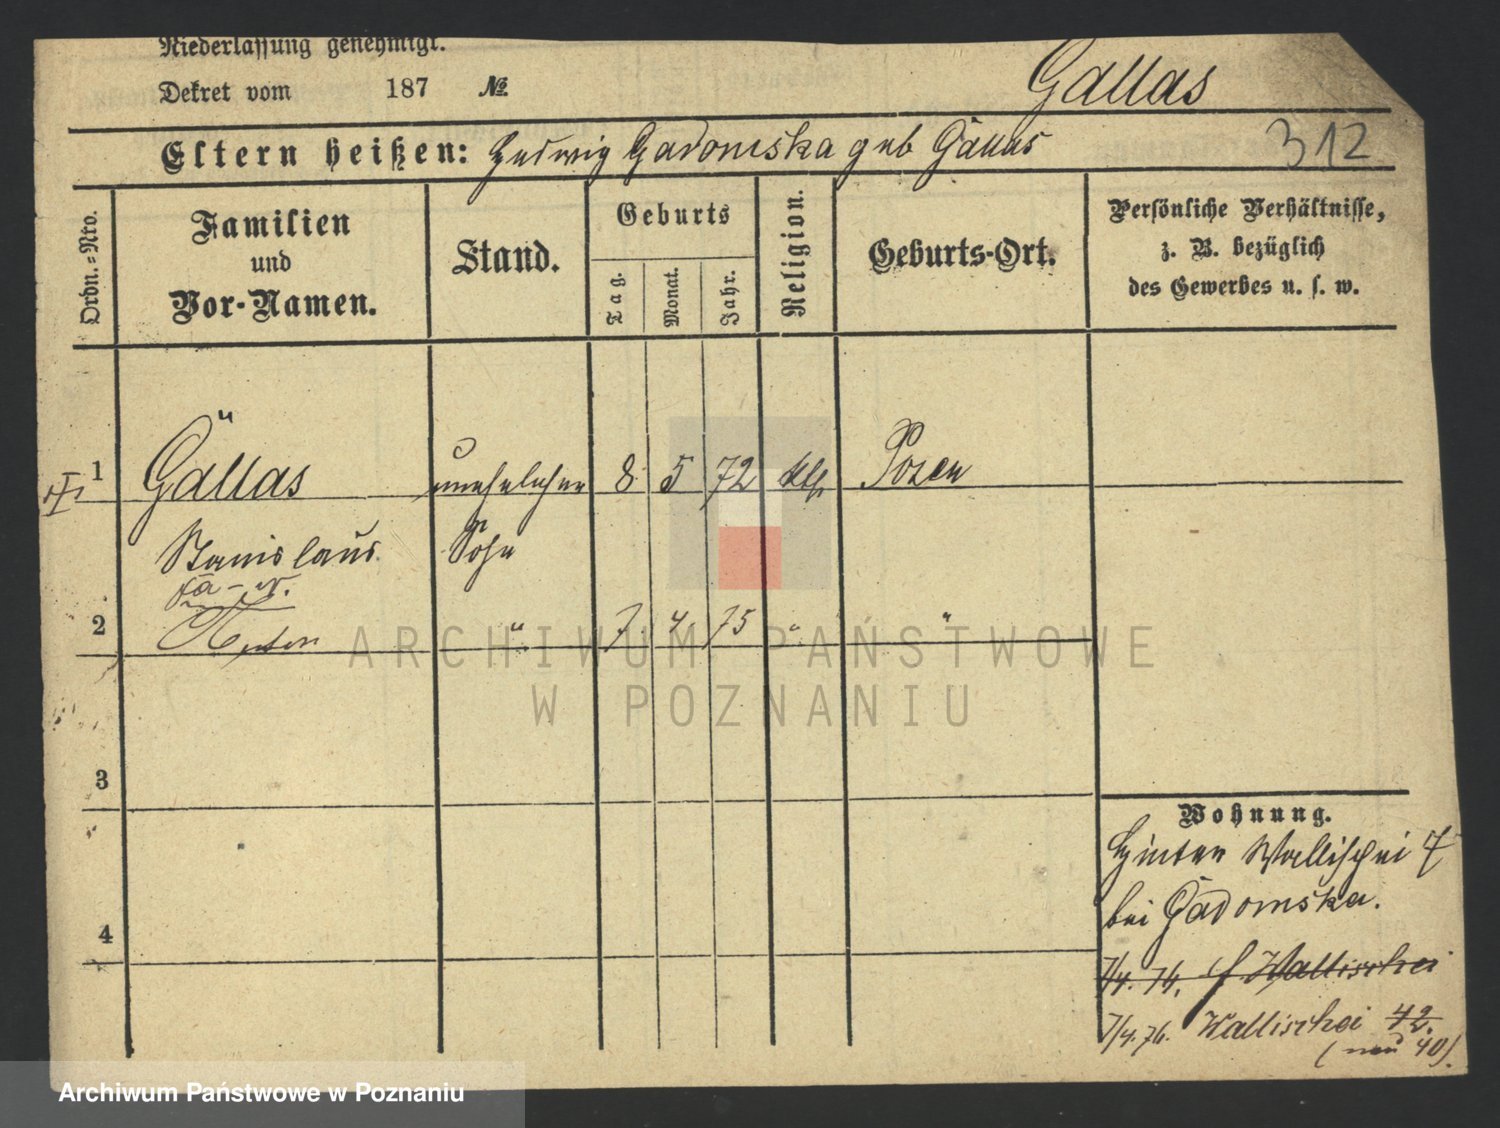 Niederlassung genehmigt.
Dekret vom 187 №
Gallas
Eltern heißen: Hedwig Gadomska geb Gallas
312
Ordn.=Nro.
Familien
und
Vor-Namen.
Stand.
Geburts
Tag.
Monat.
Jahr.
Religion.
Geburts-Ort.
Persönliche Verhältnisse,
z. B. bezüglich
des Gewerbes u. s. w.
1 Gällas unehelicher 8 5 72 kth Posen
Stanislaus Sohn
2 Anton " 7 4 75 " "
3
4
Wohnung.
Hinter Wallischei 7
bei Gadomska.
7/4. 76. Wallischei
7/4. 76. Wallischei 42.
(neu 40).
ARCHIWUM PAŃSTWOWE
W POZNANIU
Archiwum Państwowe w Poznaniu